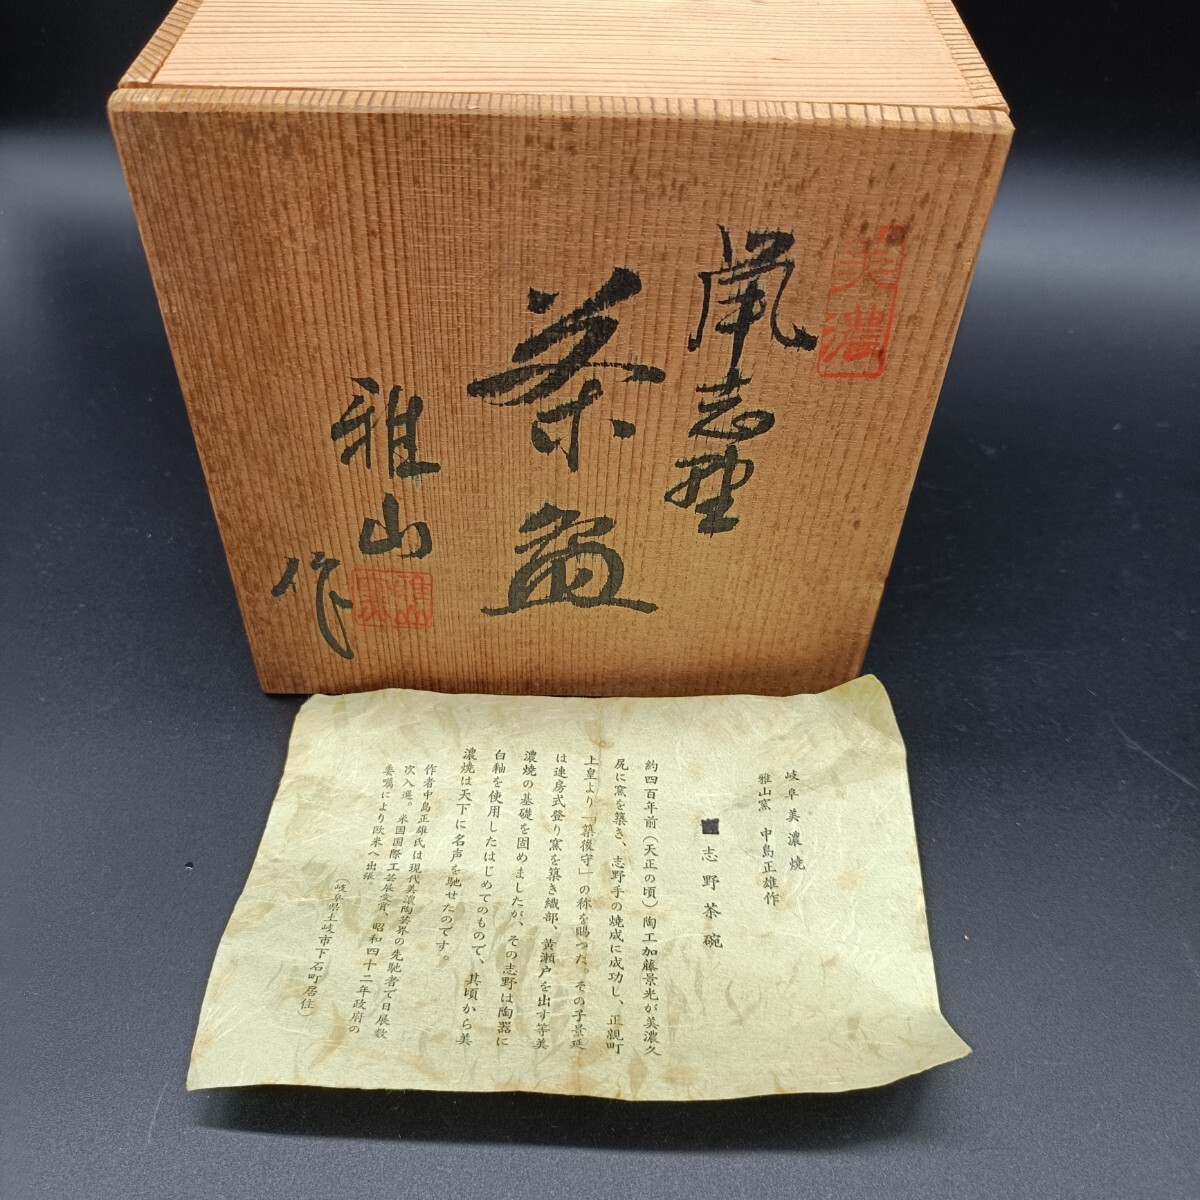 美濃
鼠志野
茶盌
雅山
作
雅山
岐阜美濃焼
雅山窯 中島正雄作
志野茶碗
約四百年前(天正の頃)陶工加藤景光が美濃久
尻に窯を築き、志野手の焼成に成功し、正親町
上皇より「築後守」の称を賜った。その子景延
は連房式登り窯を築き織部、黄瀬戸を出す等美
濃焼の基礎を固めましたが、その志野は陶器に
白釉を使用したはじめてのもので、其頃から美
濃焼は天下に名声を馳せたのです。
作者中島正雄氏は現代美濃陶芸界の先馳者で日展数
次入選。米国国際工芸展受賞、昭和四十二年政府の
委嘱により欧米へ出張。
(岐阜県土岐市下石町居住)